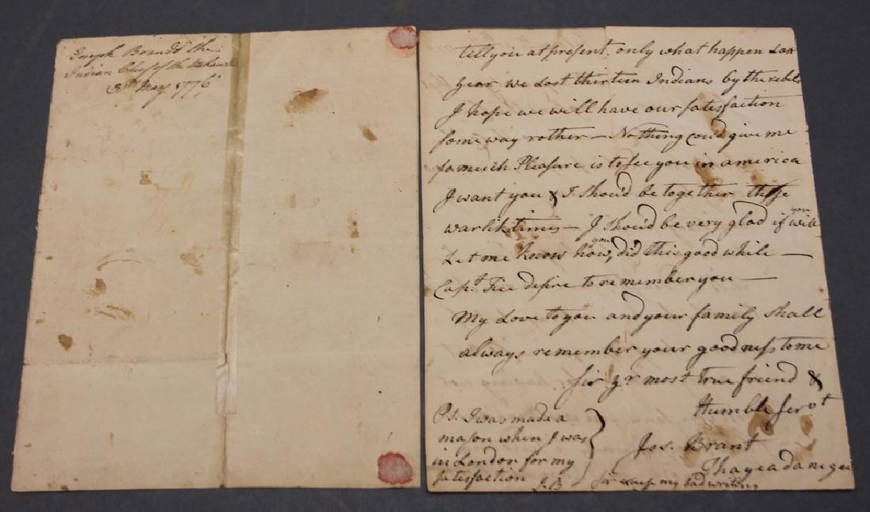 Joseph Brandt the
Indian Chief of the Mohawks
3d May 1776
tell you at present, only what happen Last
year we Lost thirteen Indians by the rebels
I hope we will have our satisfaction
some way rother — Nothing could give me
so much Pleasure is to see you in america
I want you & I should be together these
warlike times — I should be very glad if you will
Let me know how you did this good while —
Capt Tice desire to remember you —
My Love to you and your family Shall
always remember your goodness to me
Sir yr most True friend &
Humble Servt
Jos. Brant
Thayeadanegea
Ps. I was made a
mason when I was
in London for my
satisfaction J.B
Sir excuse my bad writing